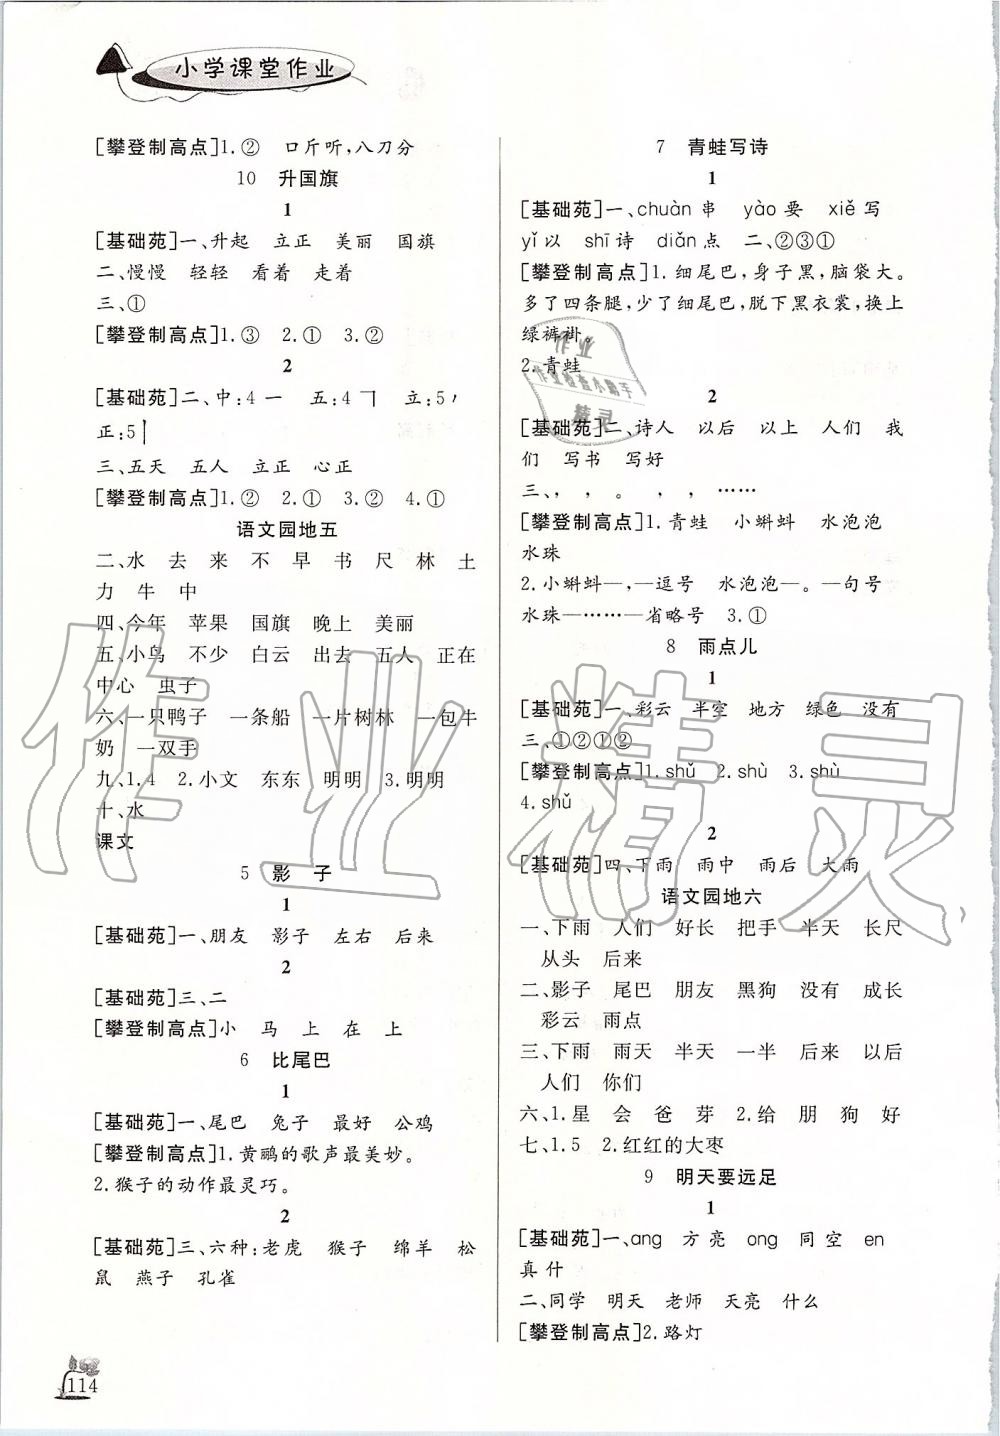 小学课堂作业
[攀登制高点]1.② 口斤听,八刀分
10 升国旗
1
[基础苑]一、升起 立正 美丽 国旗
二、慢慢 轻轻 看着 走着
三、①
[攀登制高点]1.③ 2.① 3.②
2
[基础苑]二、中:4 一 五:4 ㇕ 立:5 ㇒
正:5 丨
三、五天 五人 立正 心正
[攀登制高点]1.② 2.① 3.② 4.①
语文园地五
二、水 去 来 不 早 书 尺 林 土
力 牛 中
四、今年 苹果 国旗 晚上 美丽
五、小鸟 不少 白云 出去 五人 正在
中心 虫子
六、一只鸭子 一条船 一片树林 一包牛
奶 一双手
九、1.4 2.小文 东东 明明 3.明明
十、水
课文
5 影 子
1
[基础苑]一、朋友 影子 左右 后来
2
[基础苑]三、二
[攀登制高点]小 马 上 在 上
6 比尾巴
1
[基础苑]一、尾巴 兔子 最好 公鸡
[攀登制高点]1.黄鹂的歌声最美妙。
2.猴子的动作最灵巧。
2
[基础苑]三、六种:老虎 猴子 绵羊 松
鼠 燕子 孔雀
114
7 青蛙写诗
1
[基础苑]一、chuàn 串 yào 要 xiě 写
yǐ 以 shī 诗 diǎn 点 二、②③①
[攀登制高点]1.细尾巴,身子黑,脑袋大。
多了四条腿,少了细尾巴,脱下黑衣裳,换上
绿裤褂。
2.青蛙
2
[基础苑]二、诗人 以后 以上 人们 我
们 写书 写好
三、, , 。 , , ……
[攀登制高点]1.青蛙 小蝌蚪 水泡泡
水珠
2.小蝌蚪—,—逗号 水泡泡—。—句号
水珠—……—省略号 3.①
8 雨点儿
1
[基础苑]一、彩云 半空 地方 绿色 没有
三、①②①②
[攀登制高点]1.shǔ 2.shù 3.shù
4.shǔ
2
[基础苑]四、下雨 雨中 雨后 大雨
语文园地六
一、下雨 人们 好长 把手 半天 长尺
从头 后来
二、影子 尾巴 朋友 黑狗 没有 成长
彩云 雨点
三、下雨 雨天 半天 一半 后来 以后
人们 你们
六、1.星 会 爸 芽 2.给 朋 狗 好
七、1.5 2.红红的大枣
9 明天要远足
1
[基础苑]一、ang 方 亮 ong 同 空 en
真 什
二、同学 明天 老师 天亮 什么
[攀登制高点]2.路灯
作业精灵